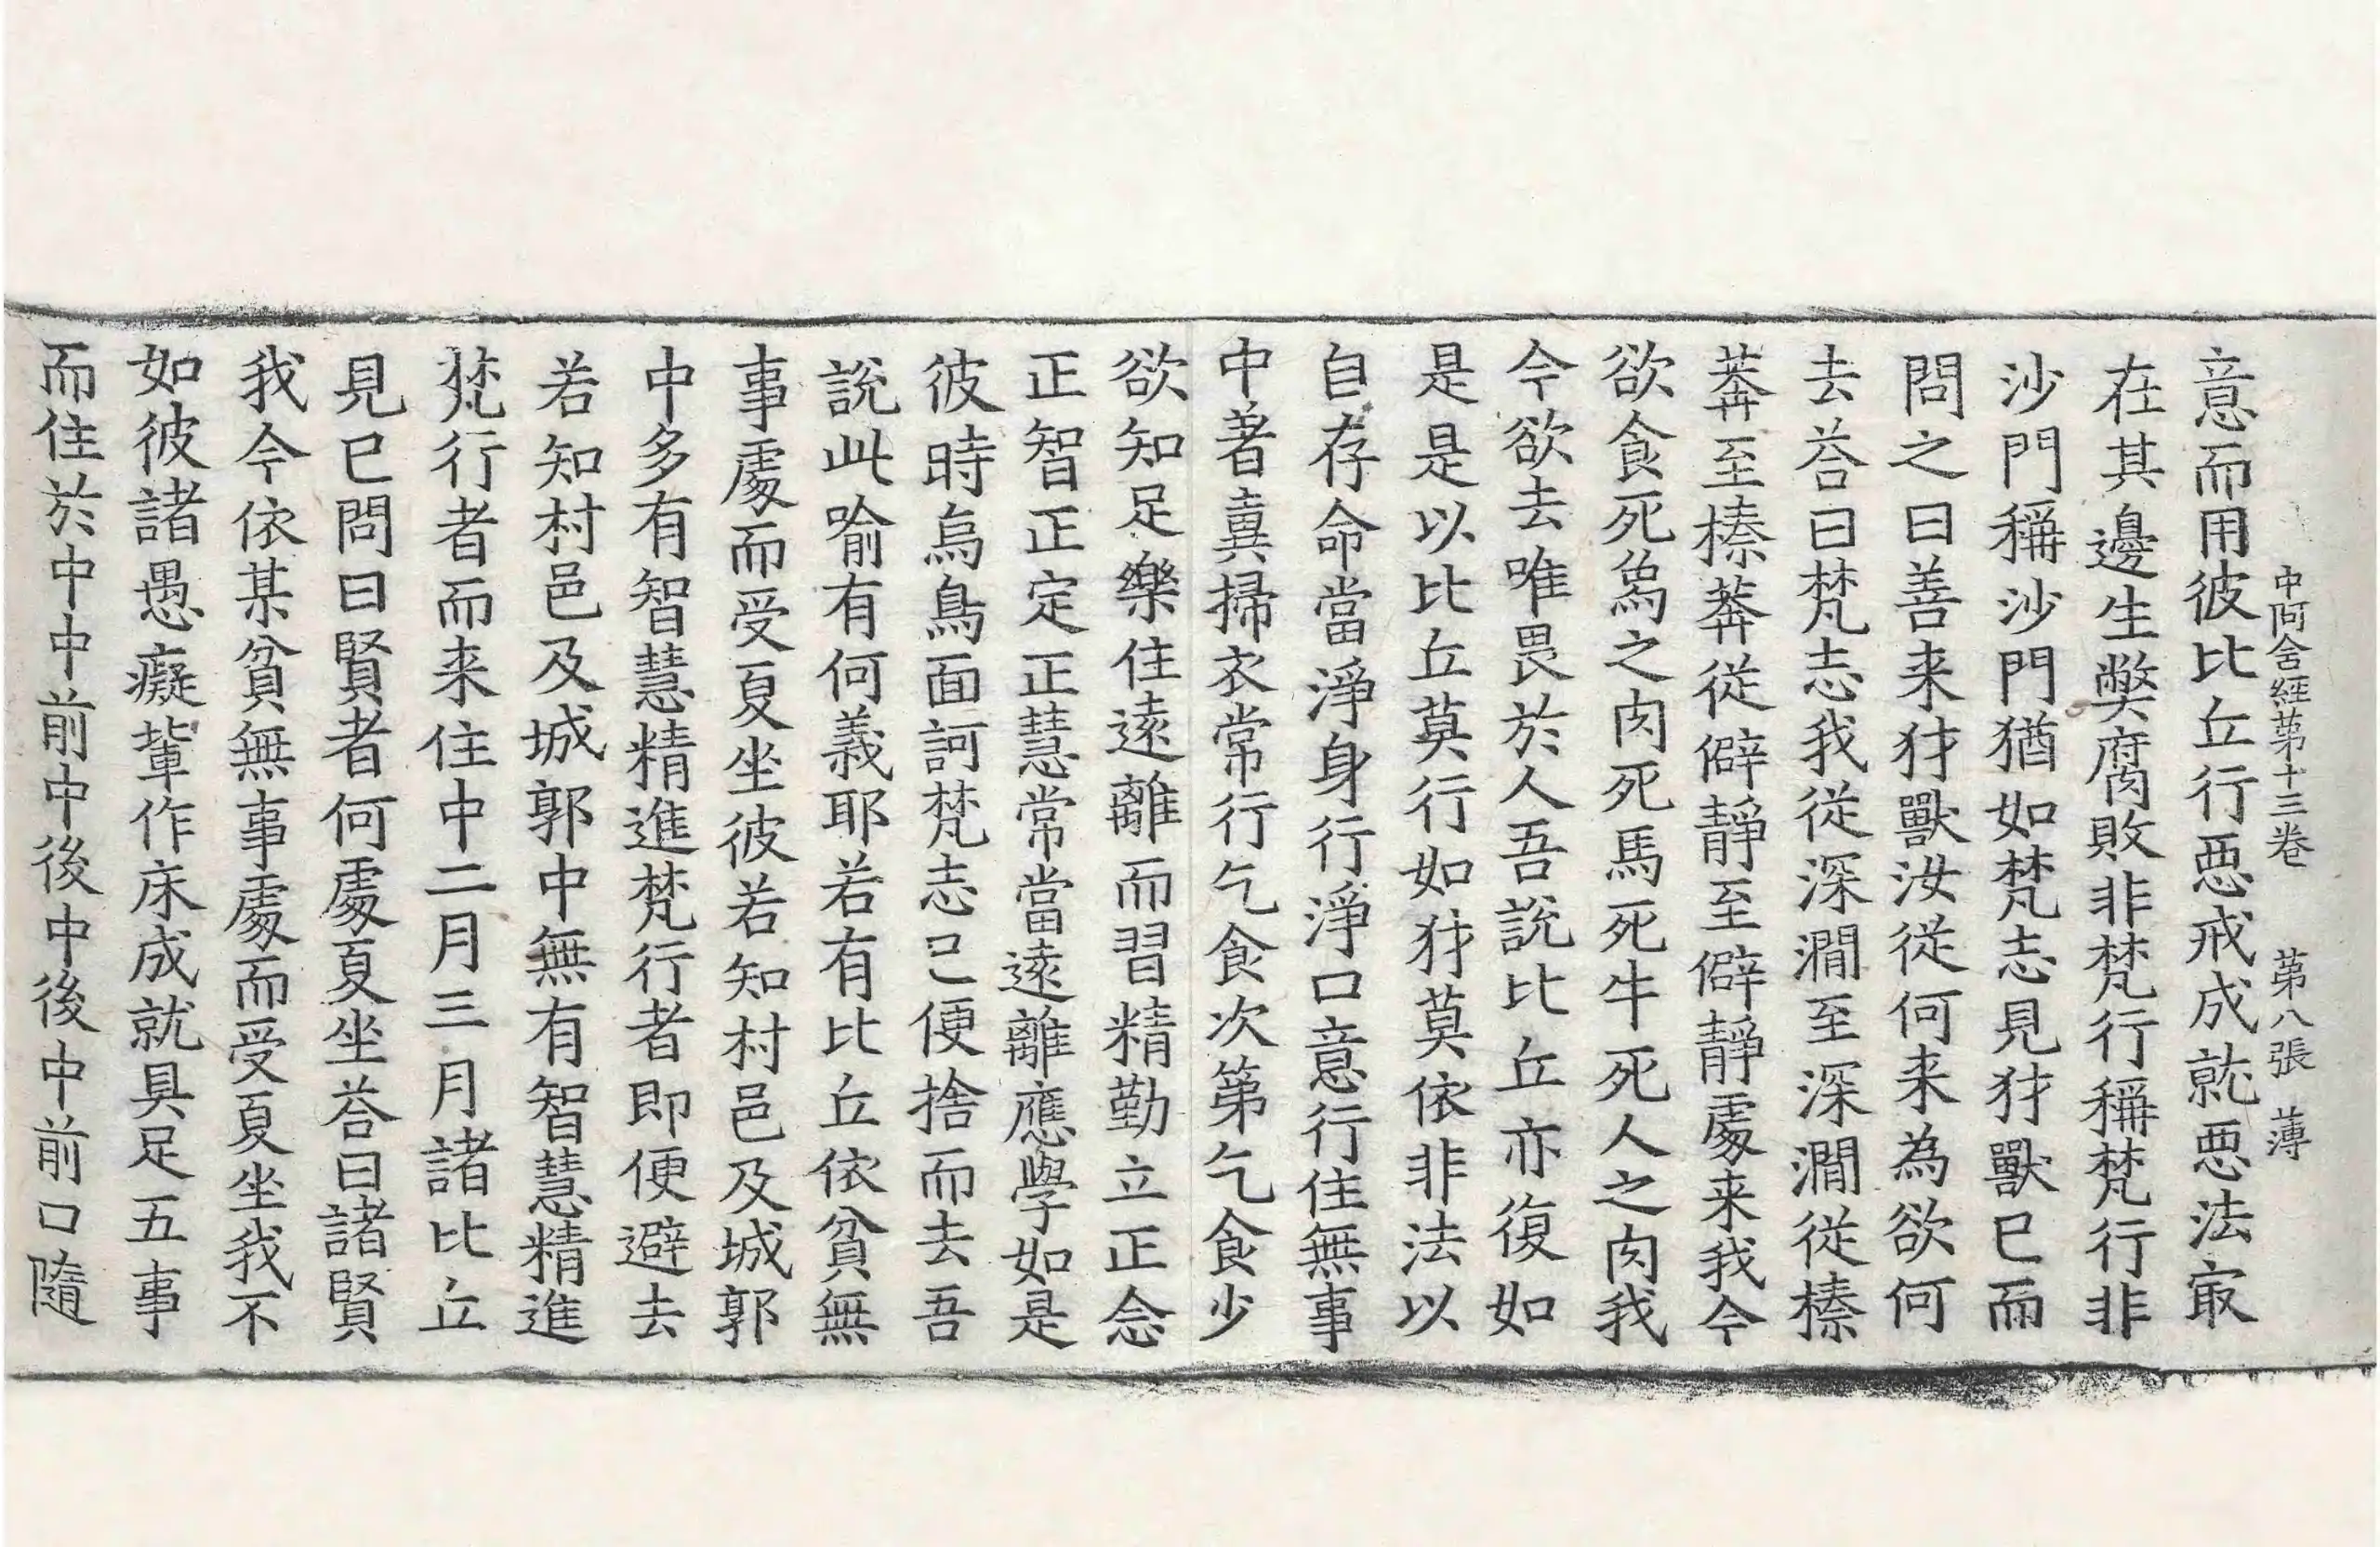 中阿含經第十三卷　第八張　薄
意而用彼比丘行惡戒成就惡法㝡
在其邊生弊腐敗非梵行稱梵行非
沙門稱沙門猶如梵志見犲獸已而
問之曰善来犲獸汝從何来為欲何
去荅曰梵志我從深澗至深澗從榛
莾至榛莾從僻靜至僻靜處来我今
欲食死象之肉死馬死牛死人之肉我
今欲去唯畏於人吾說比丘亦復如
是是以比丘莫行如犲莫依非法以
自存命當淨身行淨口意行住無事
中著糞掃衣常行乞食次第乞食少
欲知足樂住遠離而習精勤立正念
正智正定正慧常當遠離應學如是
彼時烏鳥面訶梵志已便捨而去吾
說此喻有何義耶若有比丘依貧無
事處而受夏坐彼若知村邑及城郭
中多有智慧精進梵行者即便避去
若知村邑及城郭中無有智慧精進
梵行者而来住中二月三月諸比丘
見已問曰賢者何處夏坐荅曰諸賢
我今依某貧無事處而受夏坐我不
如彼諸愚癡輩作床成就具足五事
而住於中中前中後中後中前口隨